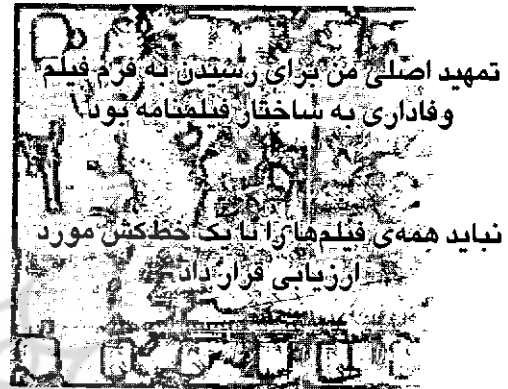 تمهید اصلی من برای رسیدن به فرم فیلم
وفاداری به ساختار فیلمنامه بود
نباید همه‌ی فیلم‌ها را با یک خط‌کش مورد
ارزیابی قرار داد